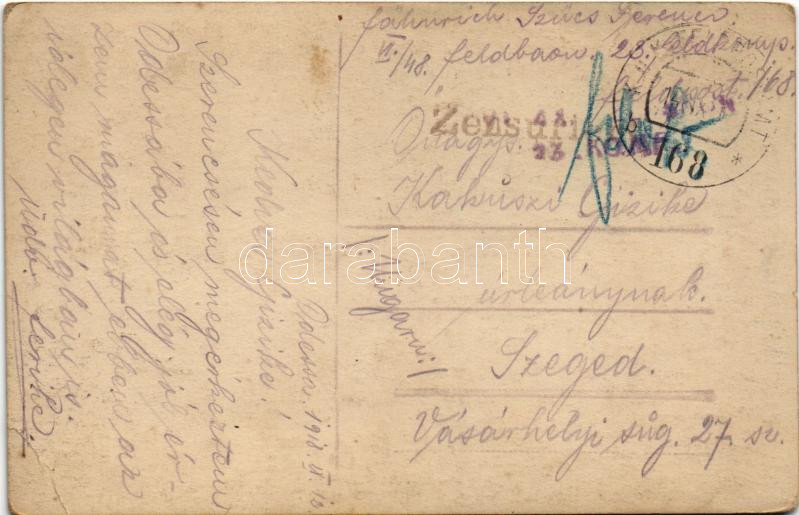 fähnrich Szűcs Ferenc.
VI./48. feldbaon. 28. feldkomp.
feldpost. 168.
Zensuriert
168
Őnagys.
Kakuszi Gizike
úrleánynak.
Szeged.
Vásárhelyi súg. 27. sz.
/: Ungarn :/
darabanth.com
Odessa. 1918.
Kedves Gizike!
Szerencsésen megérkeztem
Odessába és elég jól ér-
zem magamat ebben az
idegen világban is.
Üdv. Ferike.